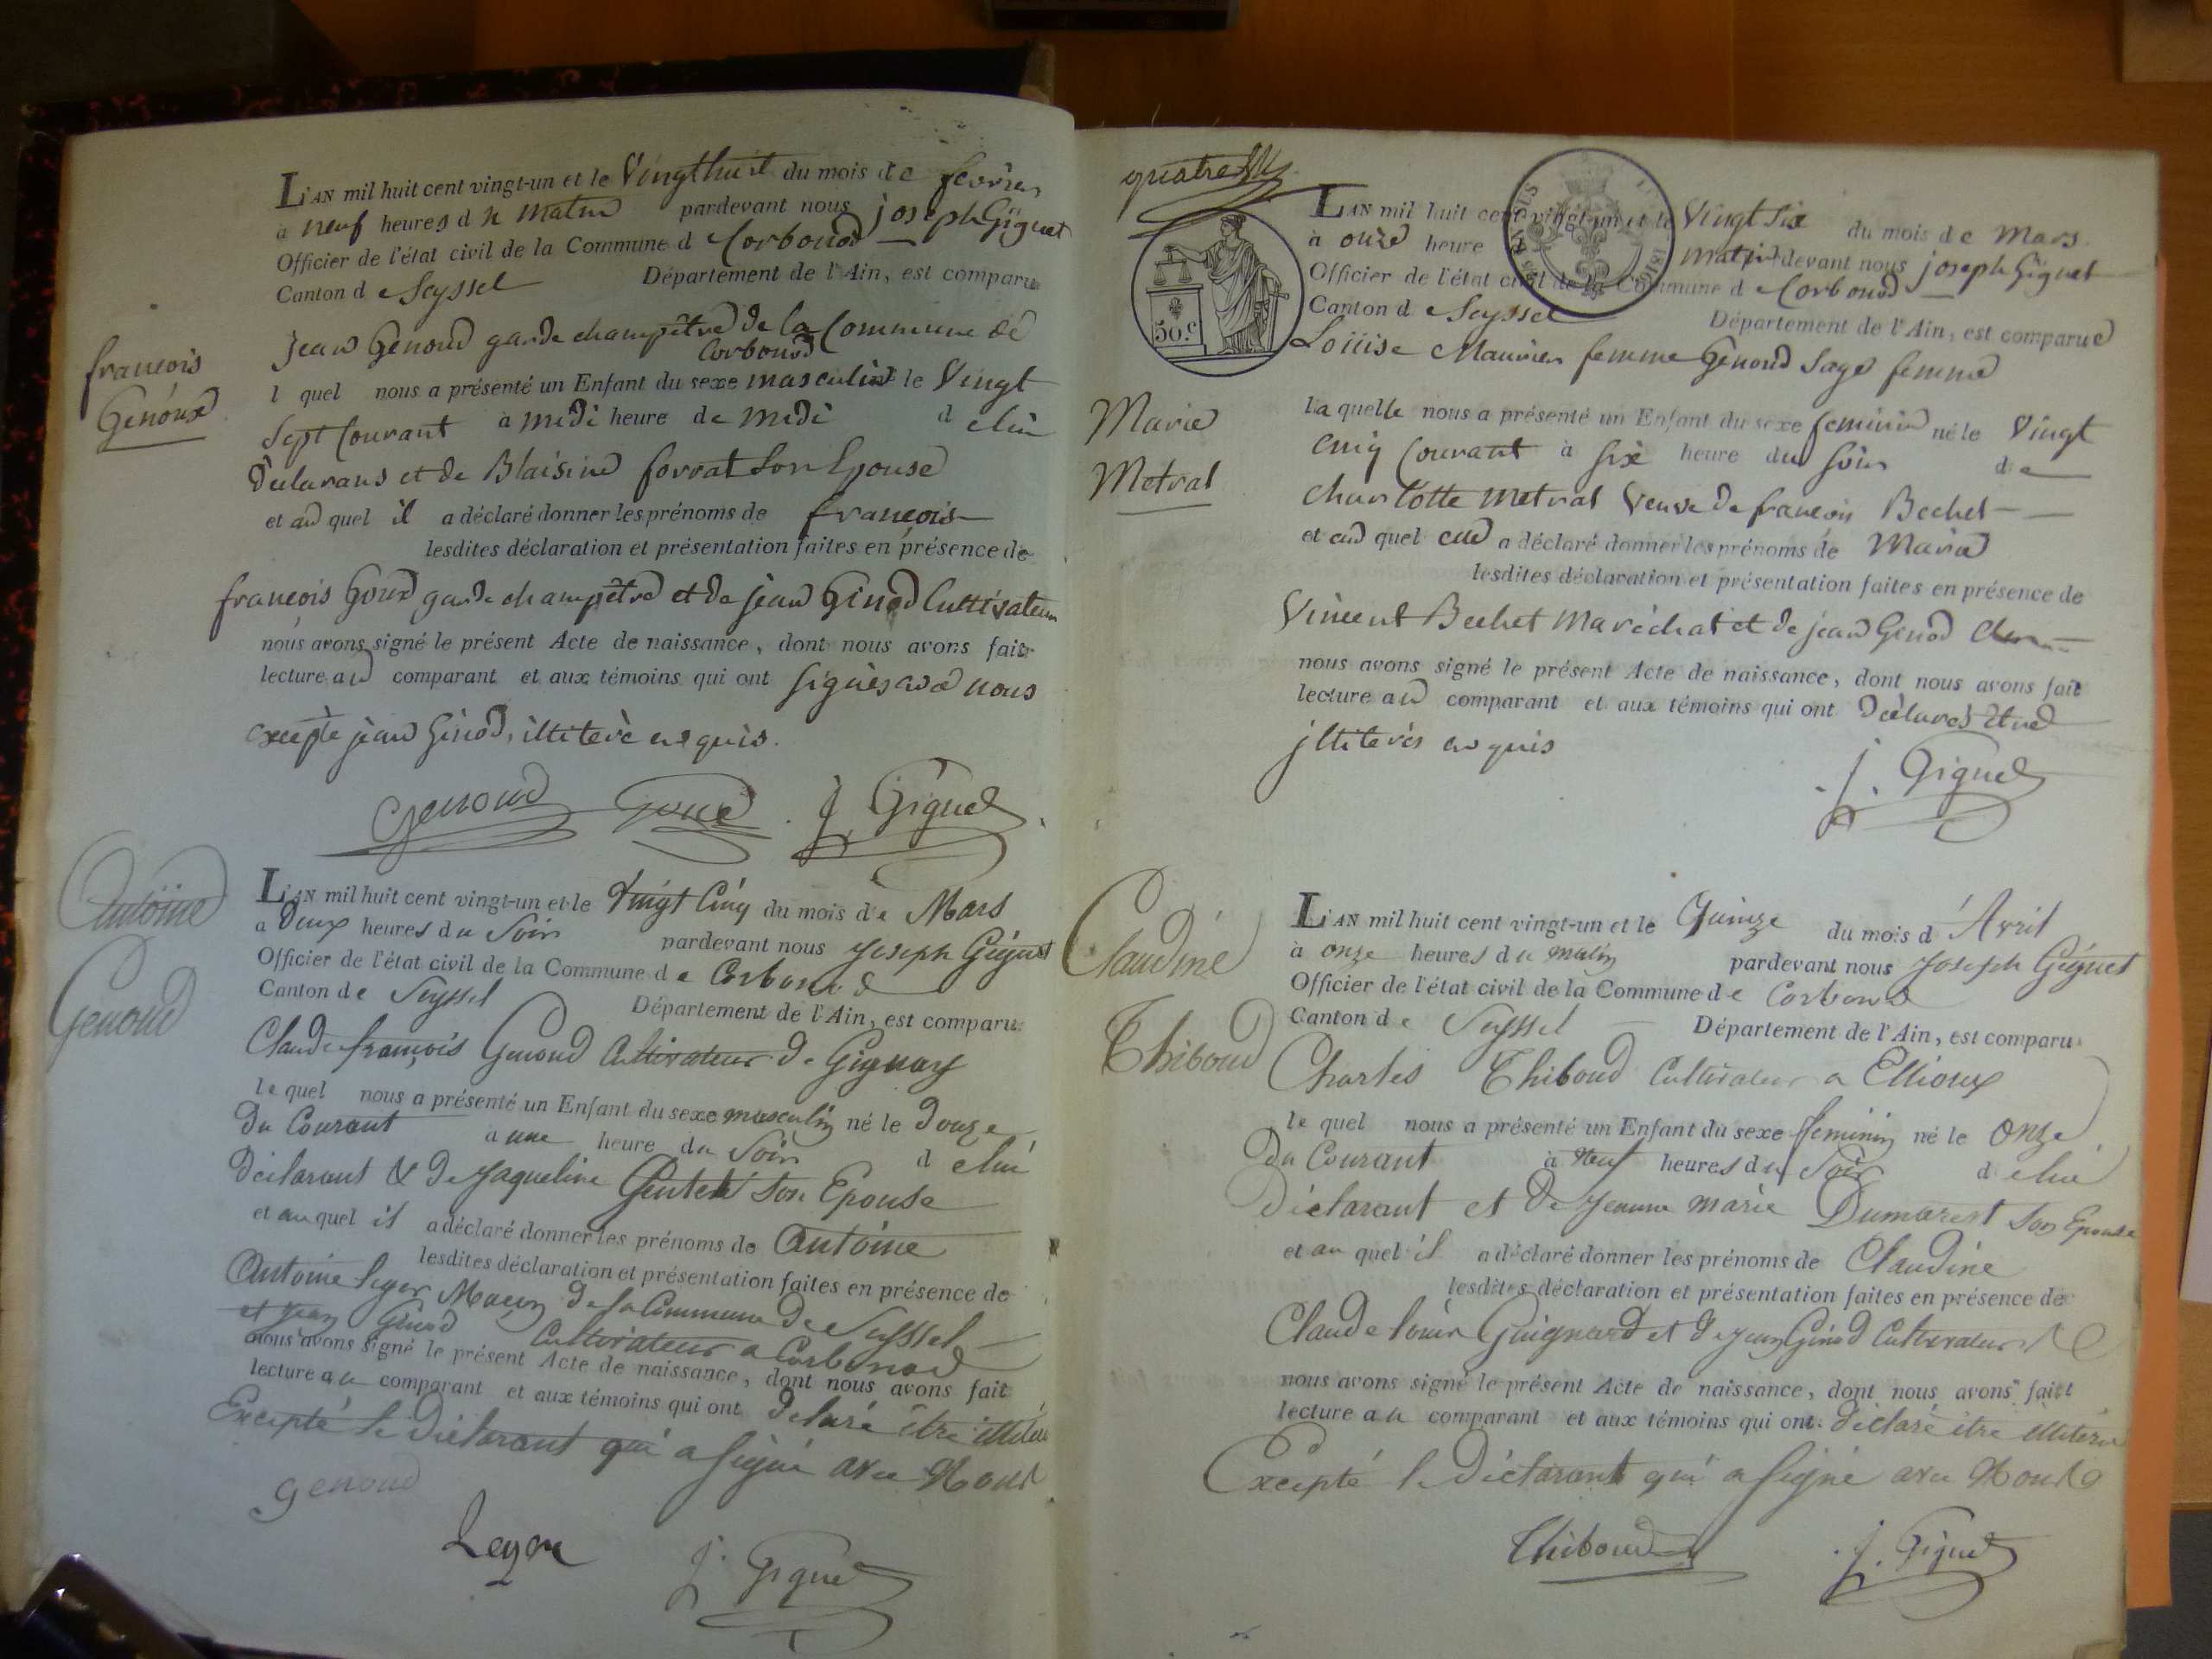 françois
Genoud
L'AN mil huit cent vingt-un et le Vingthuit du mois de fevrier
à neuf heures du matin pardevant nous joseph Giguet
Officier de l'état civil de la Commune d Corbonod
Canton de Seyssel Département de l'Ain, est comparu
jean Genoud garde champêtre de la Commune de
Corbonod
l quel nous a présenté un Enfant du sexe masculin le Vingt
Sept Courant à midi heure de midi d elui
declarans et de Blaisine forrat son Epouse
et au quel il a déclaré donner les prénoms de françois
lesdites déclaration et présentation faites en présence de
françois Goux garde champêtre et de jean Ginod Cultivateur
nous avons signé le présent Acte de naissance, dont nous avons fait
lecture au comparant et aux témoins qui ont signès avec nous
excepté jean Ginod, illiterè enquis.
Genoud Goux J. Giguet
Antoine
Genoud
L'AN mil huit cent vingt-un et le Vingt Cinq du mois de Mars
a Deux heures du Soir pardevant nous Joseph Giguet
Officier de l'état civil de la Commune de Corbonod
Canton de Seyssel Département de l'Ain, est comparu
Claude françois Genoud Cultivateur de Gignay
le quel nous a présenté un Enfant du sexe masculin né le Douze
du Courant a une heure du Soir d elui
Déclarant & de Jaqueline son Epouse
et au quel il a déclaré donner les prénoms de Antoine
lesdites déclaration et présentation faites en présence de
Antoine leger Maçon de la Commune de Seyssel
et Jean Ginod Cultivateur a Corbonod
nous avons signé le présent Acte de naissance, dont nous avons fait
lecture au comparant et aux témoins qui ont Déclaré être
Excepté le Déclarant qui a signé avec Nous
genoud
Leger J. Giguet
quatre
50.c
Marie
Metral
L'AN mil huit cent vingt-un et le Vingt Six du mois de Mars
à onze heure matin devant nous joseph Giguet
Officier de l'état civil de la Commune d Corbonod
Canton de Seyssel Département de l'Ain, est comparue
Louise Maunier femme Genoud Sage femme
la quelle nous a présenté un Enfant du sexe feminin né le Vingt
cinq Courant à six heure du soir de
charlotte metral Veuve de françois Bechet
et au quel elle a déclaré donner les prénoms de Marie
lesdites déclaration et présentation faites en présence de
Vincent Bechet Maréchal et de jean Genod
nous avons signé le présent Acte de naissance, dont nous avons fait
lecture au comparant et aux témoins qui ont Déclarés être
jlliterés enquis
J. Giguet
Claudine
Thiboud
L'AN mil huit cent vingt-un et le Quinze du mois d'Avril
à onze heures du matin pardevant nous Joseph Giguet
Officier de l'état civil de la Commune de Corbonod
Canton de Seyssel Département de l'Ain, est comparu
Charles Thiboud Cultivateur a Ellioux
le quel nous a présenté un Enfant du sexe feminin né le onze
du Courant à neuf heures du Soir d elui
Déclarant et de Jeanne marie Dumarest son Epouse
et au quel il a déclaré donner les prénoms de Claudine
lesdites déclaration et présentation faites en présence de
Claude louis Guignard et de Jean Ginod Cultivateurs
nous avons signé le présent Acte de naissance, dont nous avons fait
lecture au comparant et aux témoins qui ont Déclaré être
Excepté le Déclarant qui a signé avec Nous
Thiboud J. Giguet